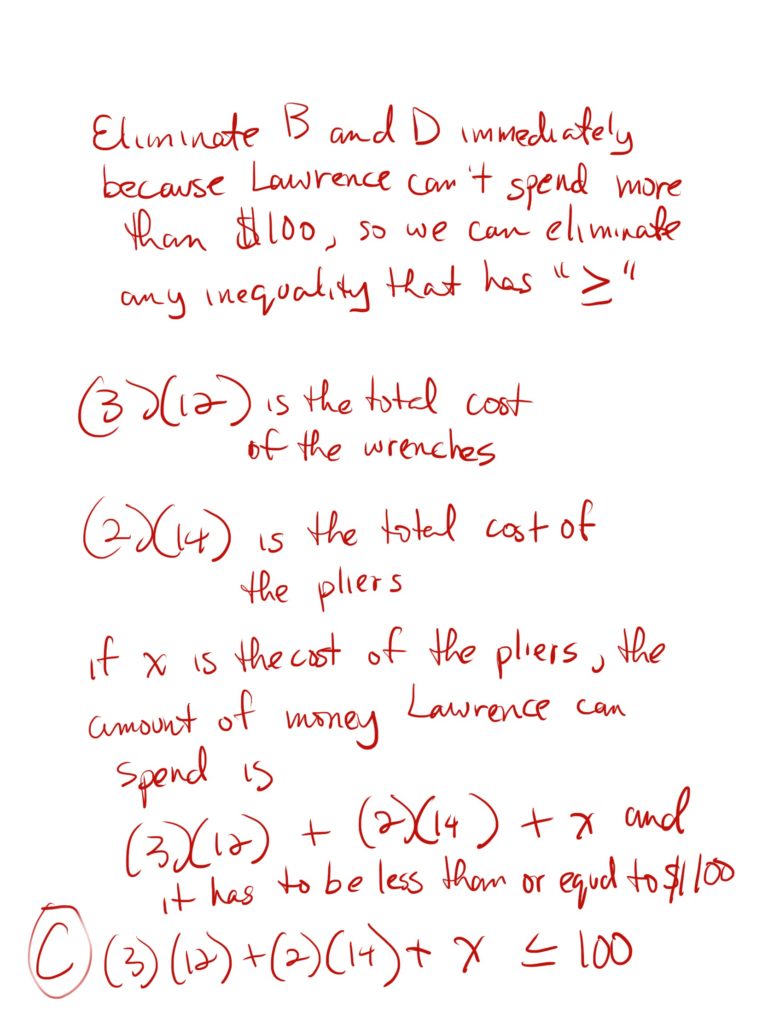 Eliminate B and D immediately
because Lawrence can't spend more
than $100, so we can eliminate
any inequality that has "≥"
(3)(12) is the total cost
of the wrenches
(2)(14) is the total cost of
the pliers
if x is the cost of the pliers, the
amount of money Lawrence can
spend is
(3)(12) + (2)(14) + x and
it has to be less than or equal to $100
C (3)(12)+(2)(14)+ x ≤ 100